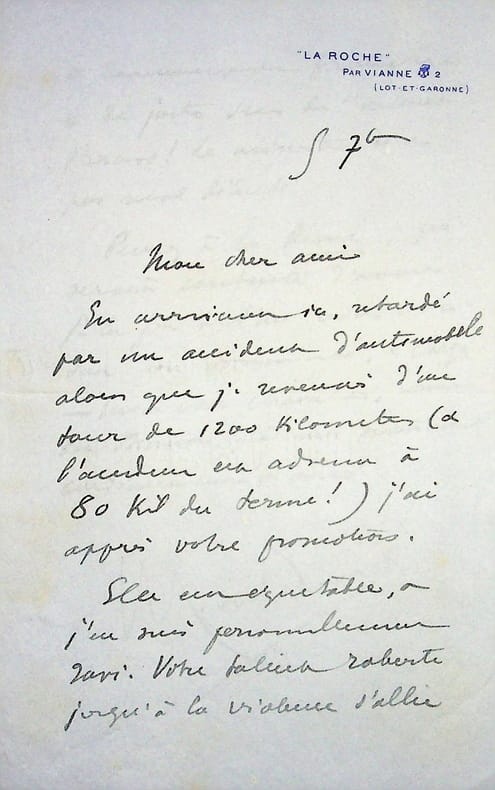 "LA ROCHE"
PAR VIANNE 2
(LOT-ET-GARONNE)
5 7b
Mon cher ami
En arrivant ici, retardé
par un accident d'automobile
alors que je revenais d'un
tour de 1200 kilometres (et
l'accident est advenu à
80 Kil du terme!) j'ai
appris votre promotion.
Elle est equitable, et
j'en suis personnellement
ravi. Votre talent robuste
jusqu'à la violence s'allie